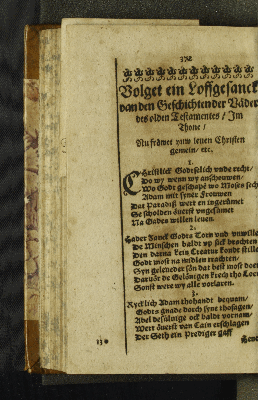 Volget ein Loffgesanck
van den Geschichten der Väder
des olden Testamentes / Im
Thone /
Nu fröwet yuw leuen Christen
gemein / etc.
1.
Christlick Godtsälich vnde recht /
Do wy wenn wy anschouwen /
Wo Godt geschapē wo Moses sech
Adam mit syner Frouwen
Dat Paradiß wert en ingerümet
Gescholden äuerst vngesümet
Na Gades willen leuen.
2.
Gades Torn vnd
De Minschen baldt vp sick brachten
Den darna kein Creatur konde stille
Godt most na middeln trachten /
Syn geleneder sön dat best most doen
Daruör de Gelöuigen
Sonst were wy alle vorlaren.
3.
Rycklich Adam thohandt bequam /
Godts gnade dorch syne thosagen /
Abel desülnige ock baldt vornam /
Wert äuerst van Cain erschlagen
Der Seth ein Prediger gaff